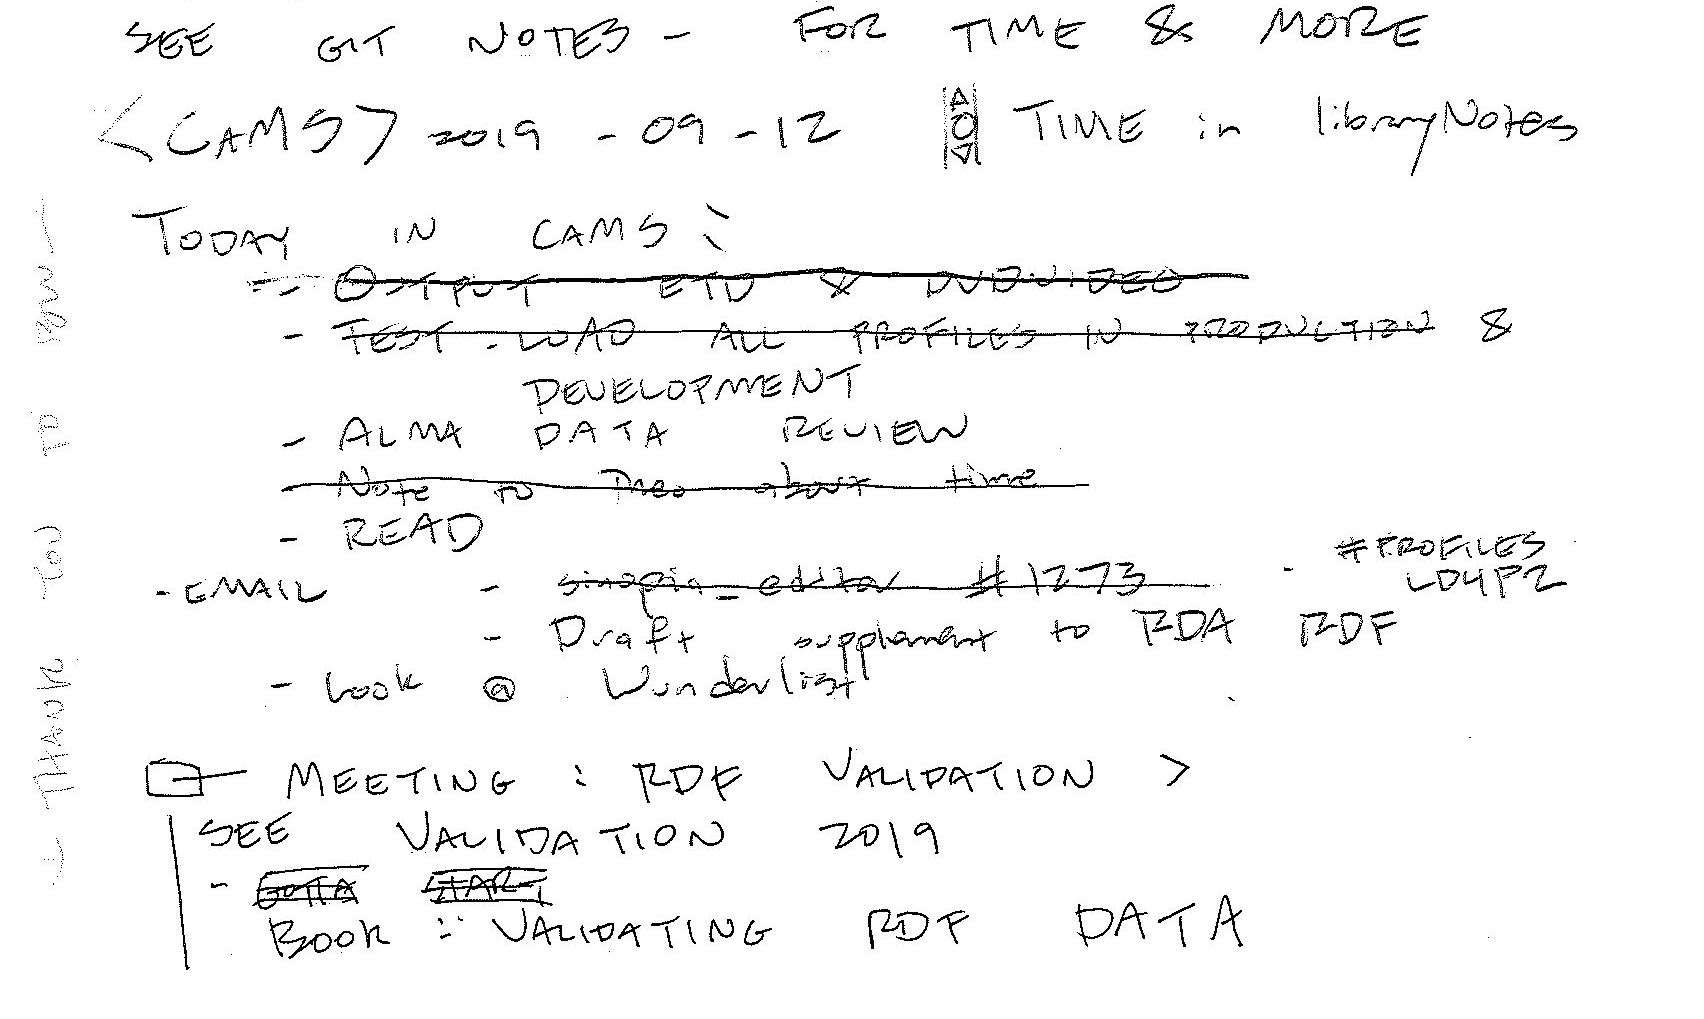 SEE GIT NOTES - FOR TIME & MORE
<CAMS> 2019-09-12 TIME in libraryNotes
TODAY IN CAMS:
- OUTPUT ETD & DVDVIDEO
- TEST. LOAD ALL PROFILES IN PRODUCTION &
DEVELOPMENT
- ALMA DATA REVIEW
- Note to Theo about time
- READ
- EMAIL - sinopia_editor #1273 - #PROFILES
LD4P2
- Draft supplement to RDA RDF
- Look @ Wunderlist
MEETING : RDF VALIDATION >
SEE VALIDATION 2019
- GOTTA START
BOOK :: VALIDATING RDF DATA
THANK YOU TO